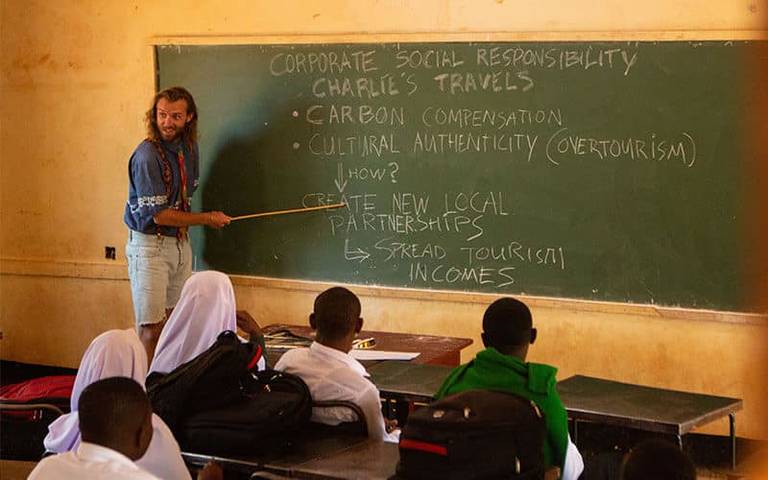 CORPORATE SOCIAL RESPONSIBILITY
CHARLIE'S TRAVELS
• CARBON COMPENSATION
• CULTURAL AUTHENTICITY (OVERTOURISM)
↓ HOW?
CREATE NEW LOCAL
PARTNERSHIPS
↳ SPREAD TOURISM
INCOMES